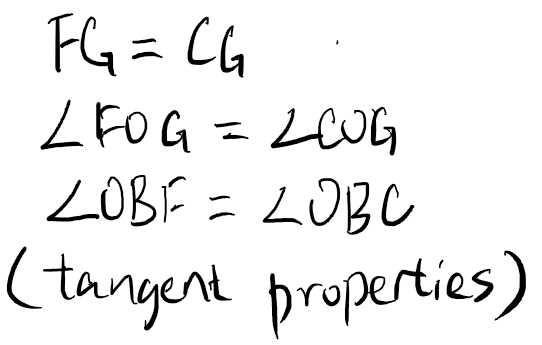 FG = CG
∠FOG = ∠COG
∠OBF = ∠OBC
(tangent properties)